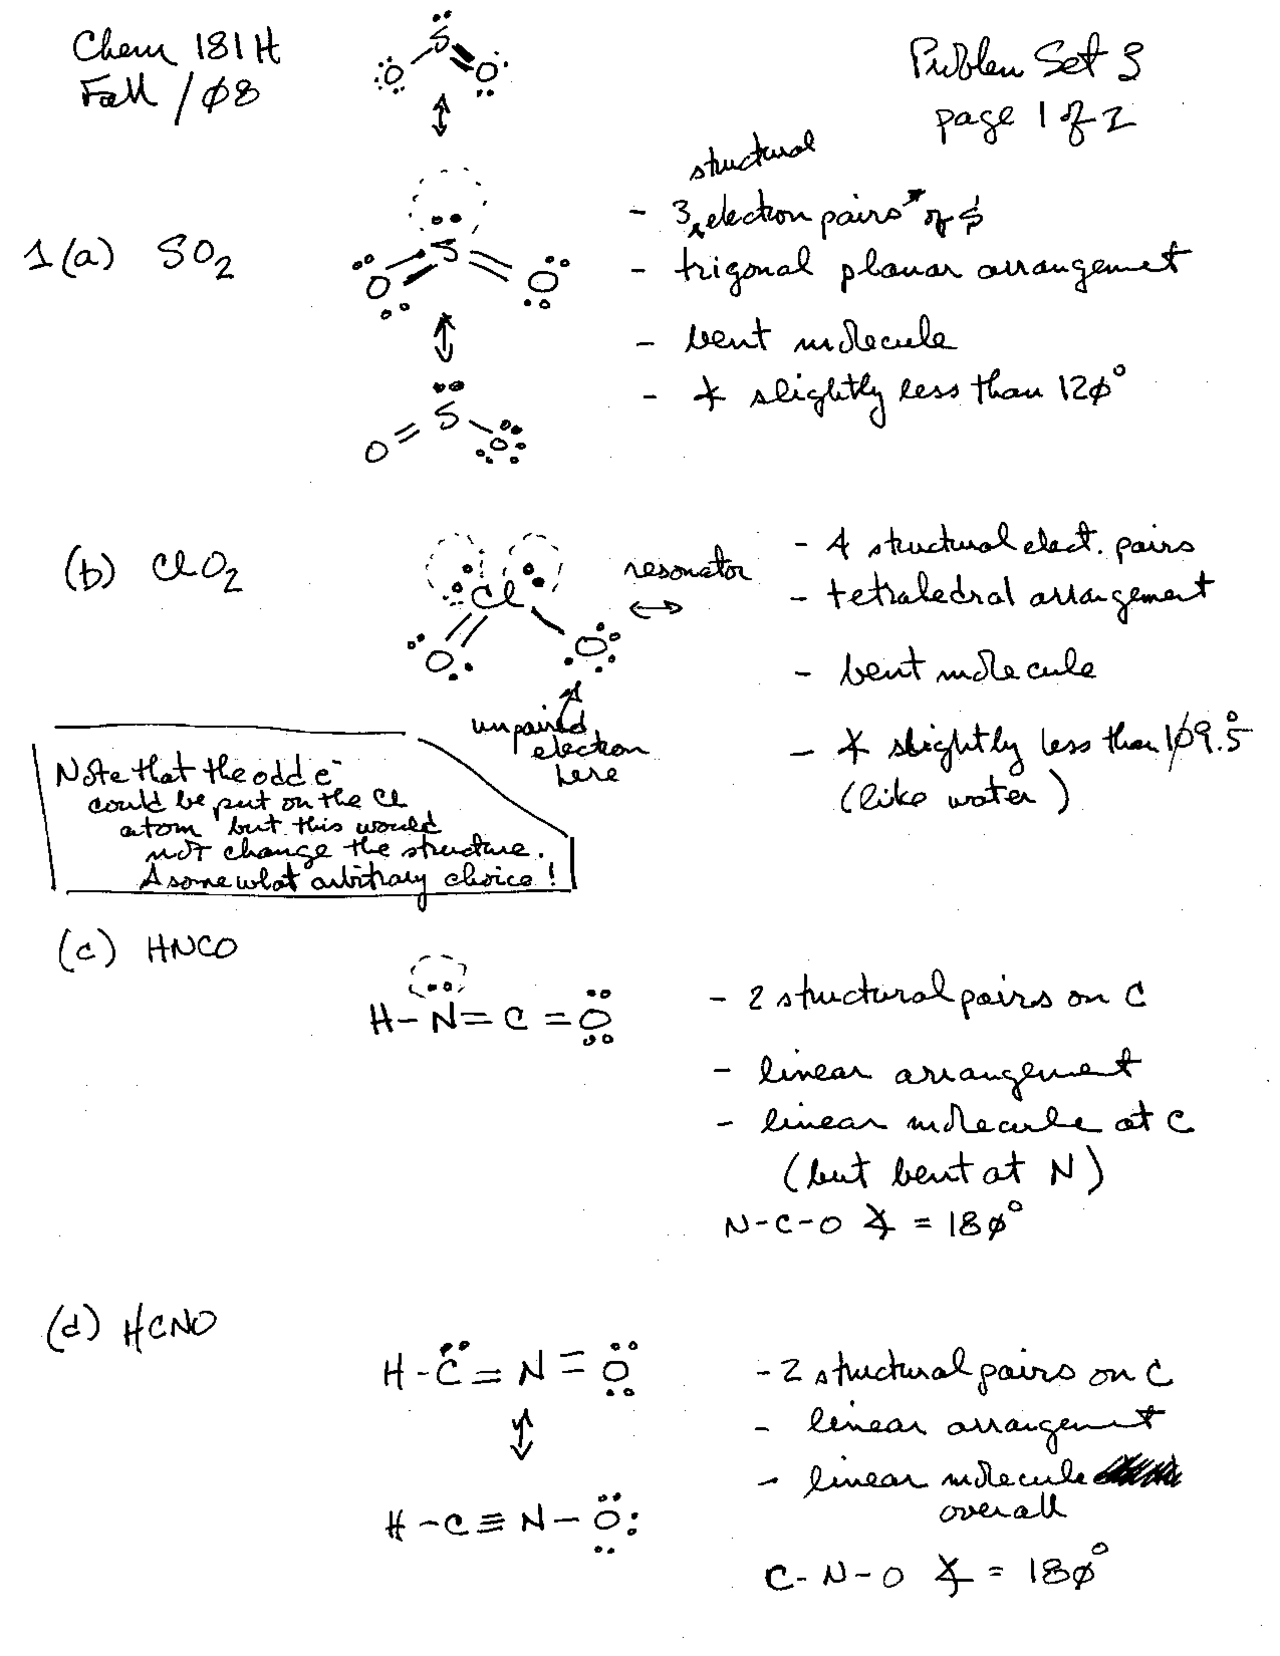 Chem 181H
Fall /08
Problem Set 3
page 1 of 2
1(a) SO2
S
O O
S
O O
S
O = O
structural
- 3 electron pairs of S
- trigonal planar arrangement
- bent molecule
- ∡ slightly less than 120°
(b) ClO2
Cl
O O
unpaired
electron
here
resonator
↔
- 4 structural elect. pairs
- tetrahedral arrangement
- bent molecule
- ∡ slightly less than 109.5°
(like water)
Note that the odd e-
could be put on the Cl
atom but this would
not change the structure.
A somewhat arbitrary choice!
(c) HNCO
H-N=C=O
- 2 structural pairs on C
- linear arrangement
- linear molecule at C
(but bent at N)
N-C-O ∡ = 180°
(d) HCNO
H-C=N=O
H-C≡N-O:
- 2 structural pairs on C
- linear arrangement
- linear molecule
overall
C-N-O ∡ = 180°